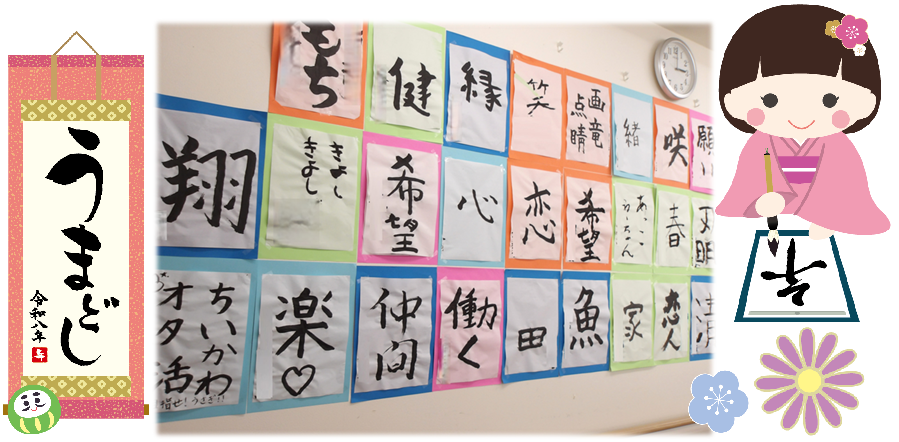 うまどし
令和八年
もち
健
縁
笑
画竜
点睛
緒
咲
願い
翔
きよし
きよし
希望
心
恋心
希望
春
文明
ちいかわ
オタ活
楽♡
仲間
働く
田
魚
家
恋人
吉